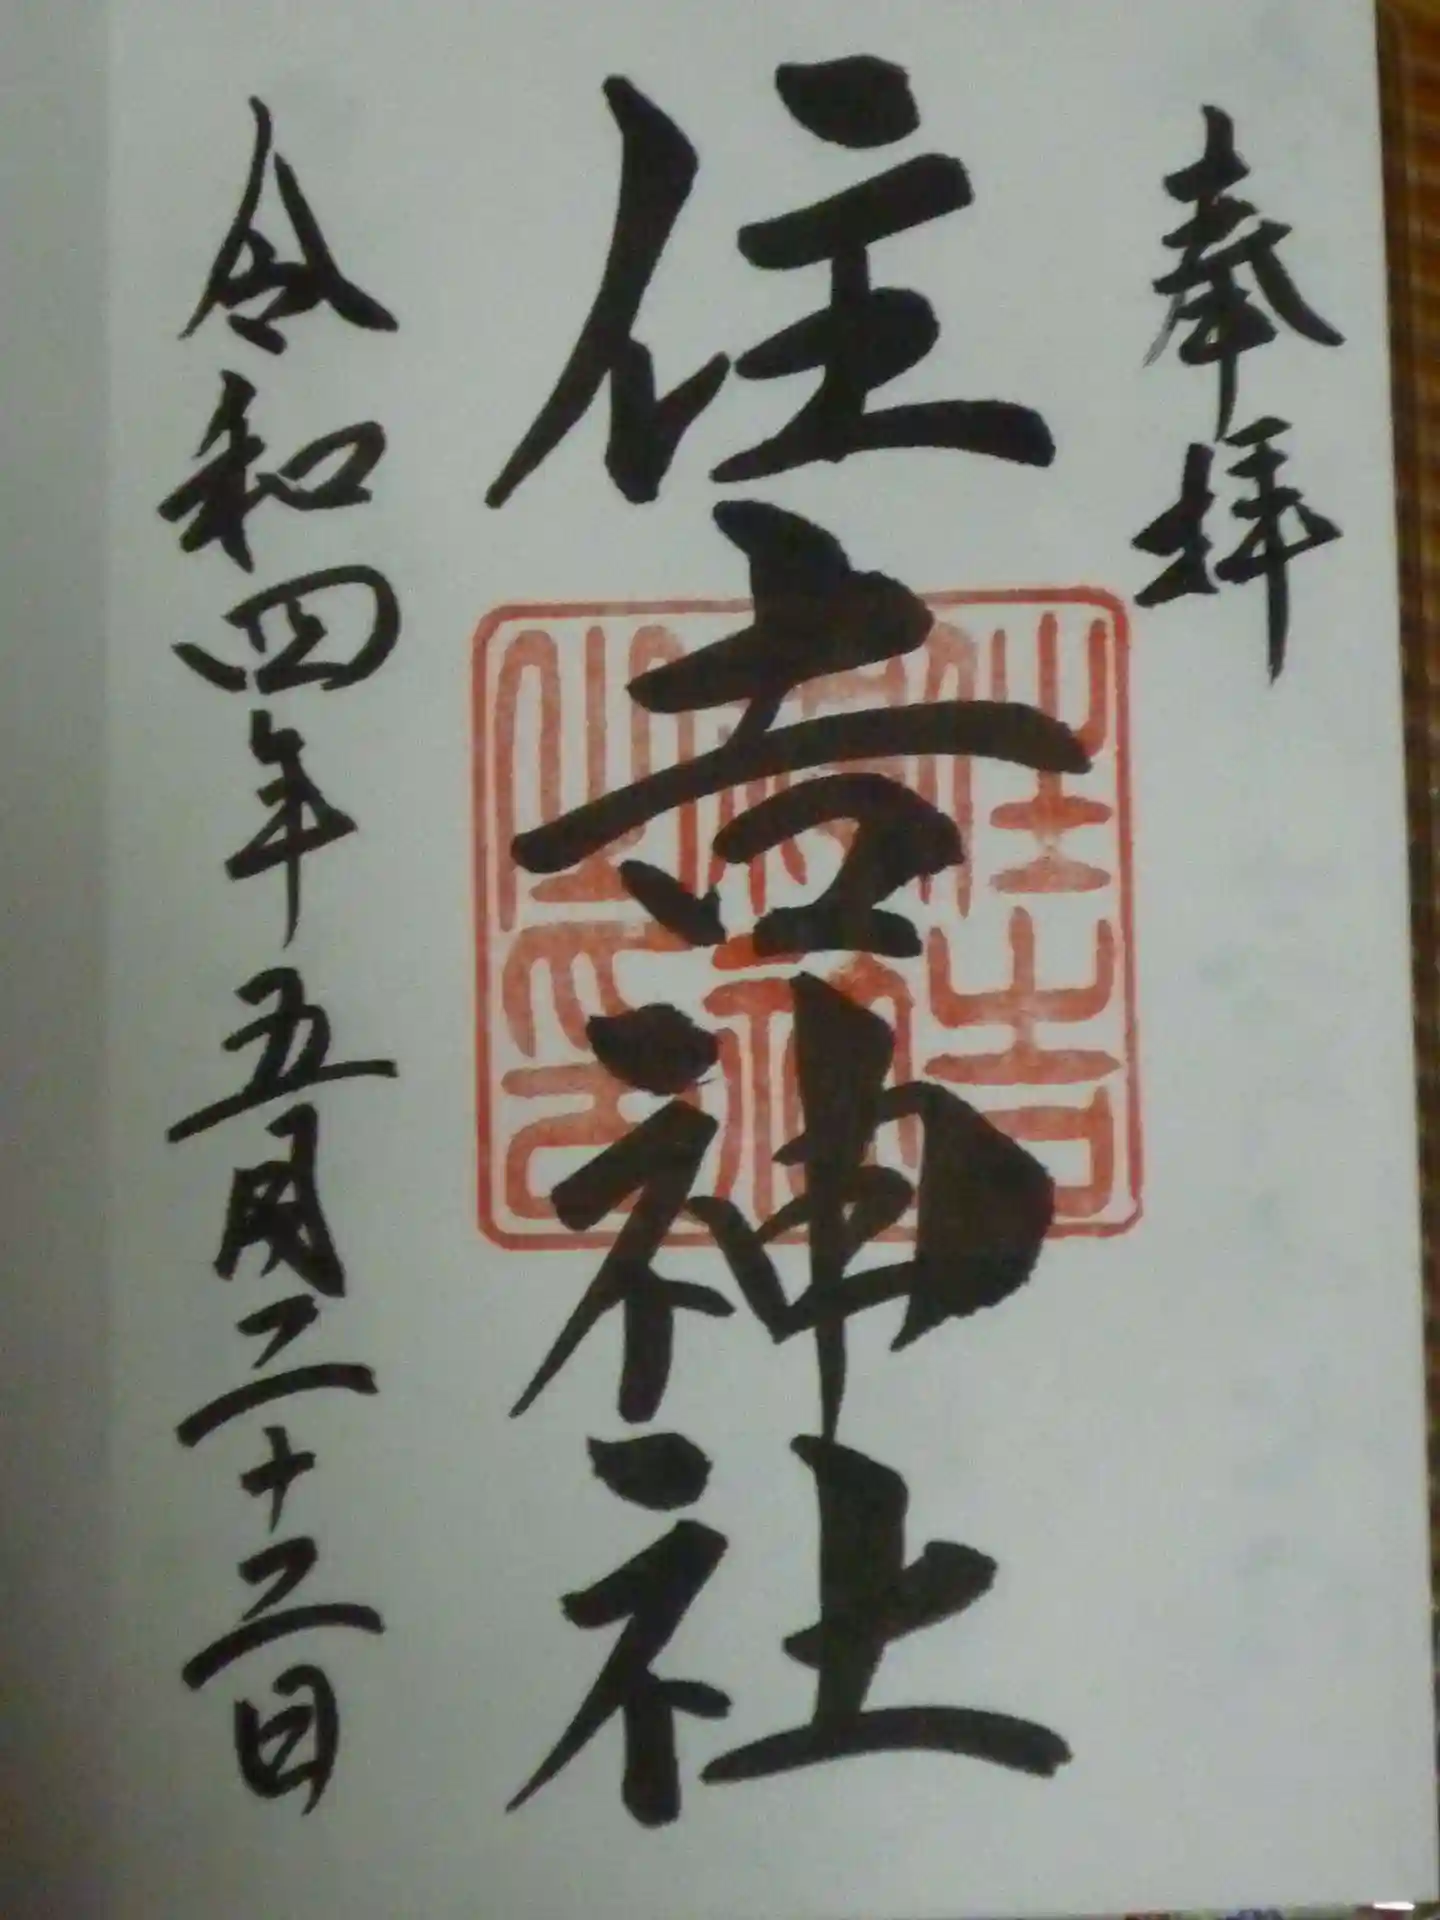 奉拝
住吉神社
令和四年五月二十二日
住吉
神社
之印